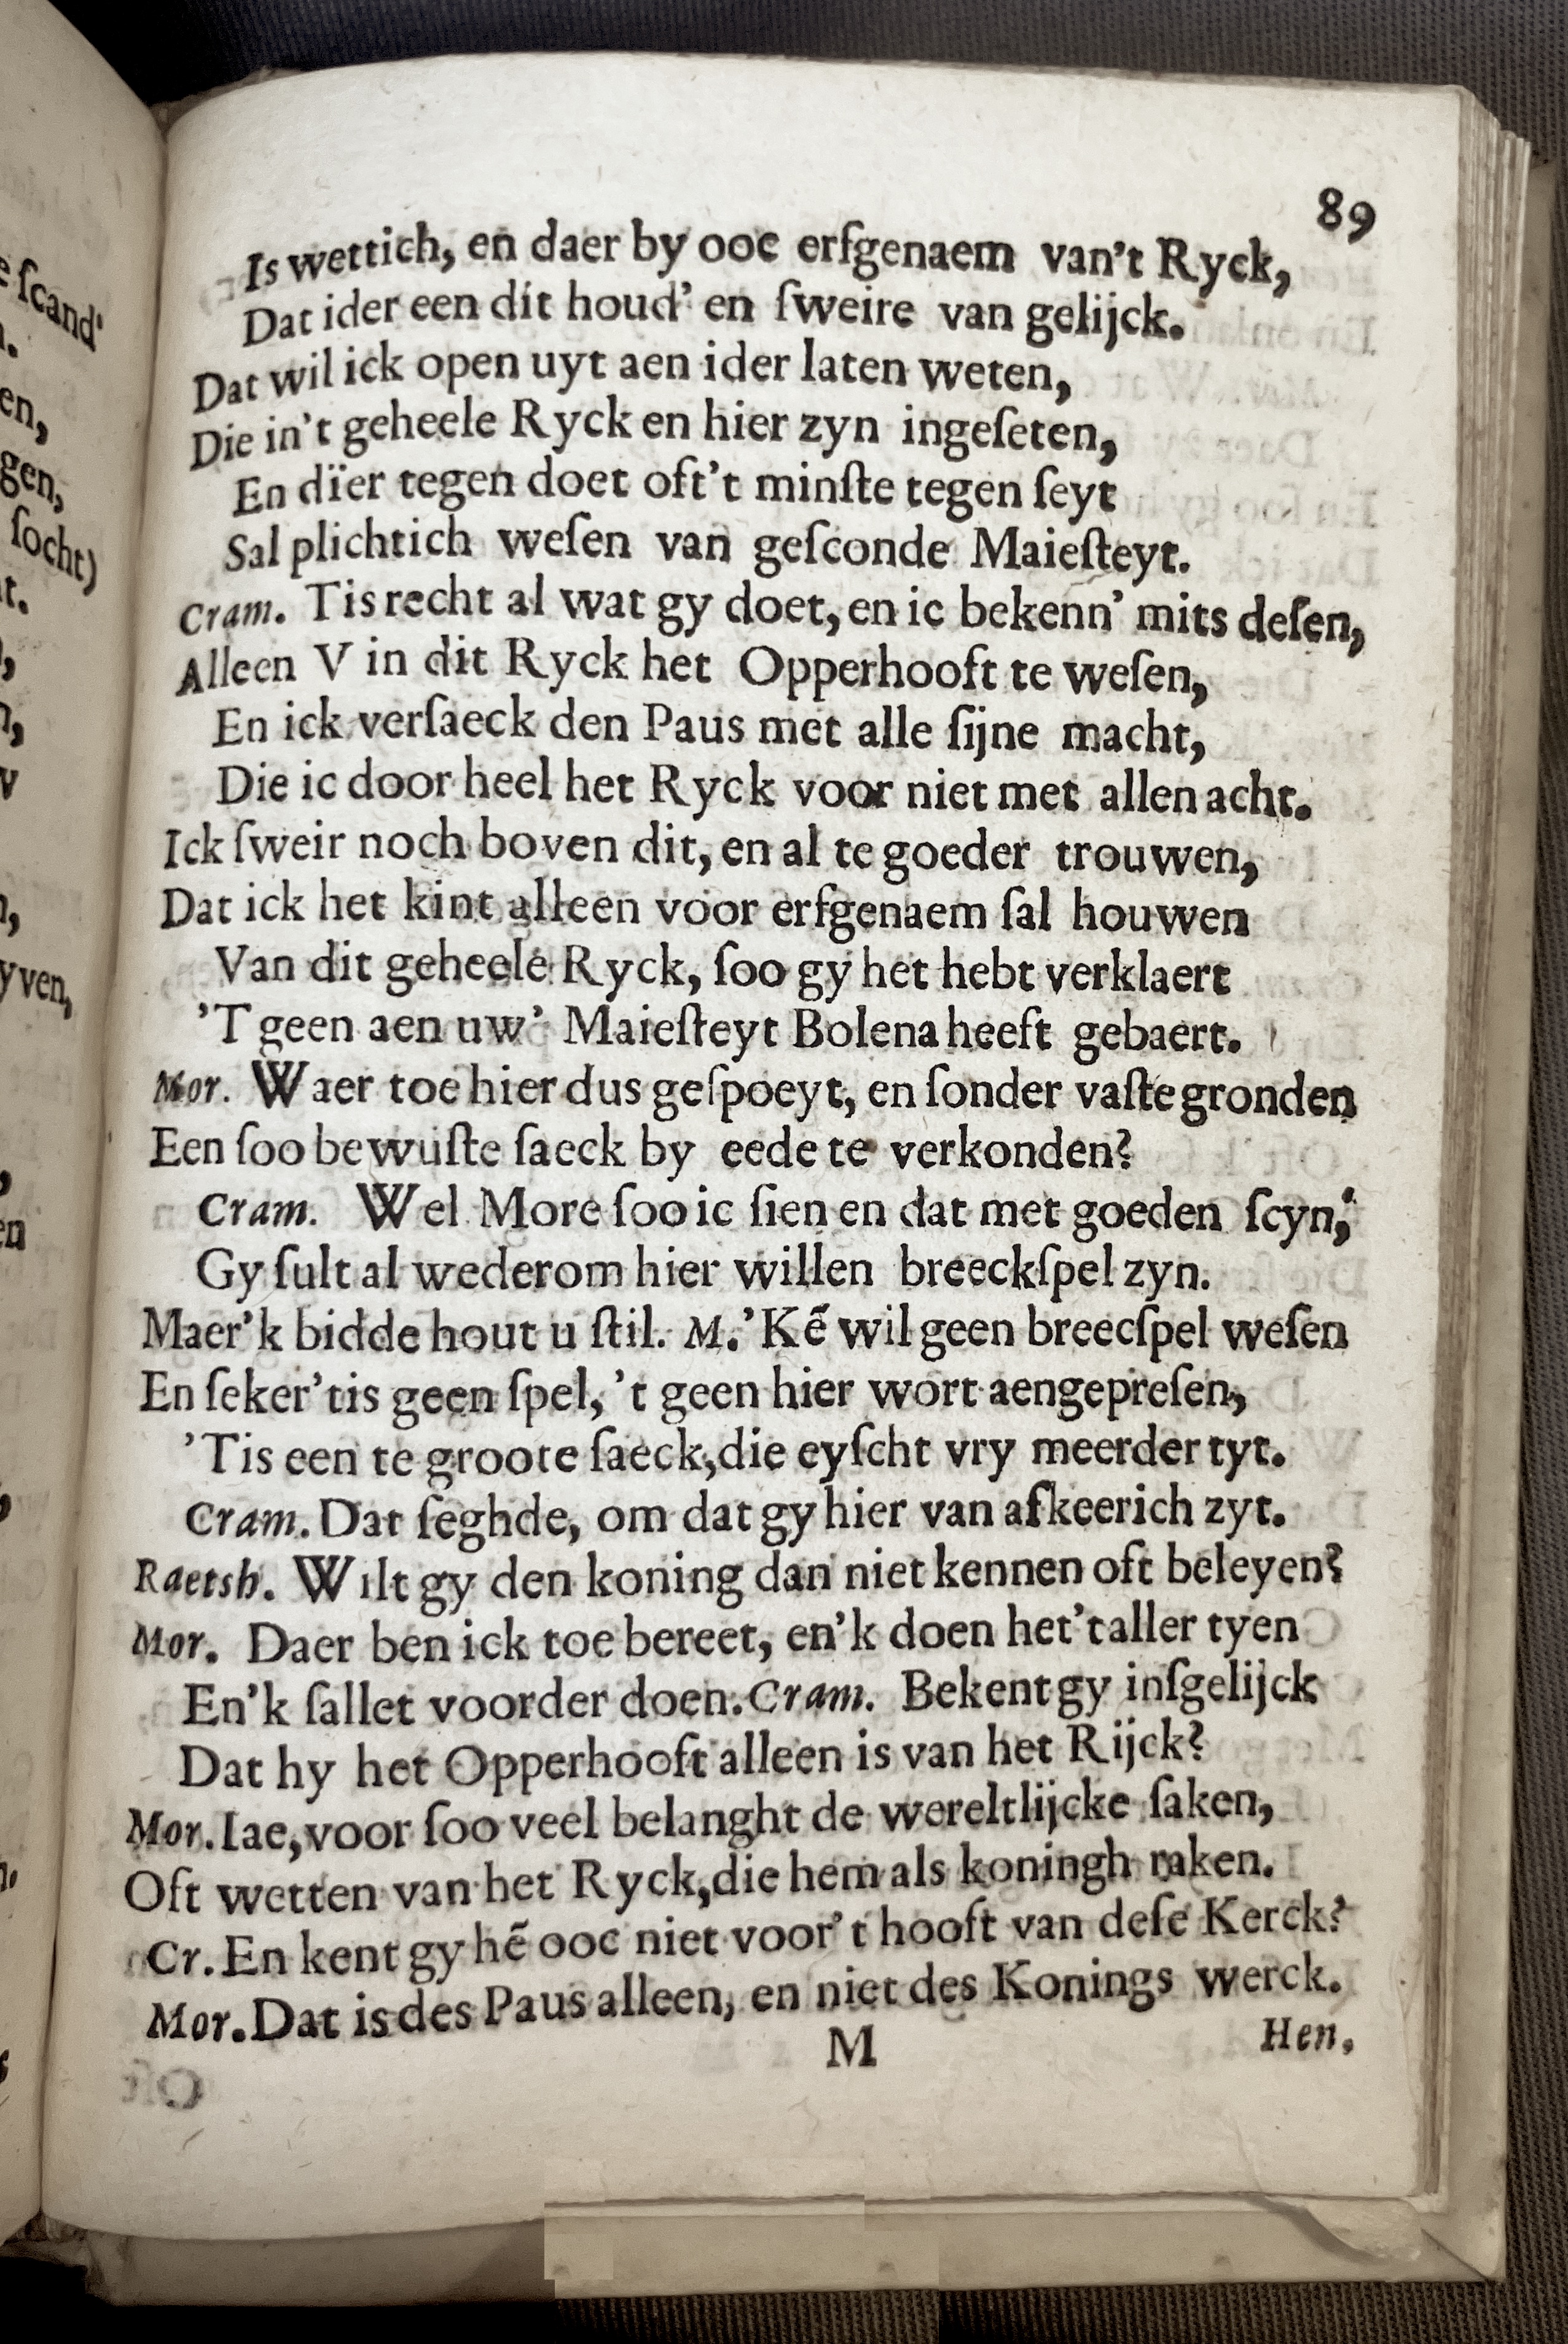 89
Is wettich, en daer by ooc erfgenaem van't Ryck,
Dat ider een dit houd' en ſweire van gelijck.
Dat wil ick open uyt aen ider laten weten,
Die in't geheele Ryck en hier zyn ingeſeten,
En dïer tegen doet oft't minſte tegen ſeyt
Sal plichtich weſen van geſconde Maieſteyt.
Cram. Tis recht al wat gy doet, en ic bekenn' mits deſen,
Alleen V in dit Ryck het Opperhooft te weſen,
En ick verſaeck den Paus met alle ſijne macht,
Die ic door heel het Ryck voor niet met allen acht.
Ick ſweir noch boven dit, en al te goeder trouwen,
Dat ick het kint alleen voor erfgenaem ſal houwen
Van dit geheele Ryck, ſoo gy het hebt verklaert
'T geen aen uw' Maieſteyt Bolena heeft gebaert.
Mor. Waer toe hier dus geſpoeyt, en ſonder vaſte gronden
Een ſoo bewuſte ſaeck by eede te verkonden?
Cram. Wel More ſoo ic ſien en dat met goeden ſcyn,
Gy ſult al wederom hier willen breeckſpel zyn.
Maer'k bidde hout u ſtil. M.'Kẽ wil geen breecſpel weſen
En ſeker'tis geen ſpel, 't geen hier wort aengepreſen,
'Tis een te groote ſaeck, die eyſcht vry meerder tyt.
Cram. Dat ſeghde, om dat gy hier van afkeerich zyt.
Raetsh. Wilt gy den koning dan niet kennen oft beleyen?
Mor. Daer ben ick toe bereet, en'k doen het't aller tyen
En'k ſallet voorder doen. Cram. Bekent gy inſgelijck
Dat hy het Opperhooft alleen is van het Rijck?
Mor. Iae, voor ſoo veel belanght de wereltlijcke ſaken,
Oft wetten van het Ryck, die hem als koningh raken.
Cr. En kent gy hẽ ooc niet voor't hooft van deſe Kerck?
Mor. Dat is des Paus alleen, en niet des Konings werck.
M
Hen.